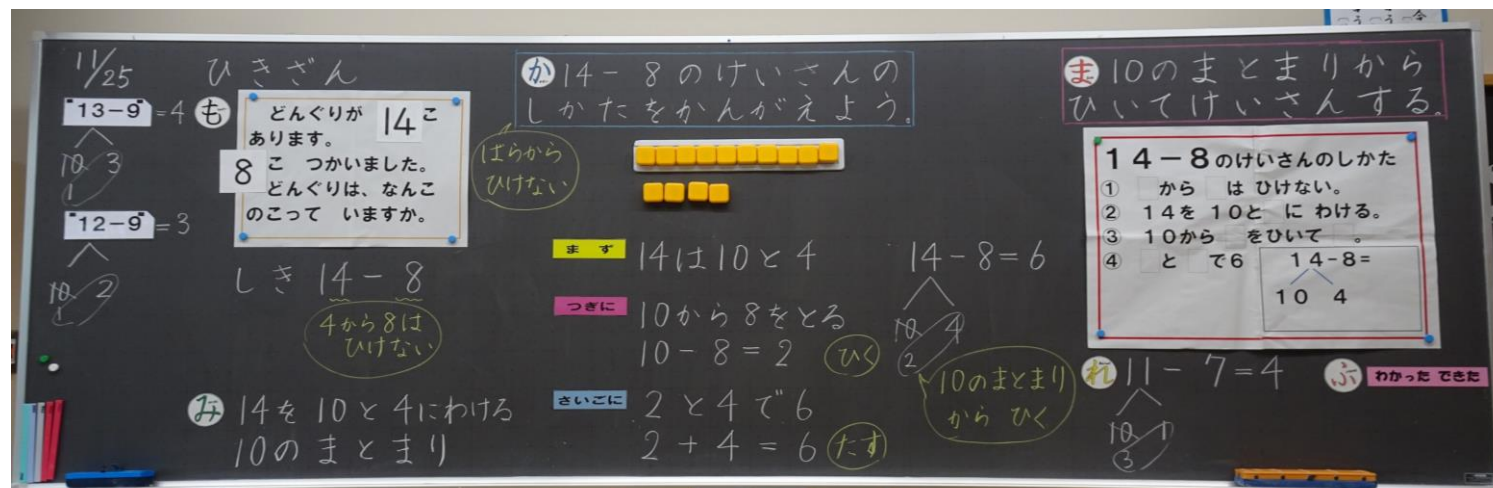 11/25
ひきざん
13-9=4
10 3
1
12-9=3
10 2
1
も
どんぐりが 14こ
あります。
8こ つかいました。
どんぐりは、なんこ
のこって いますか。
しき 14-8
4から8は
ひけない
み 14を10と4にわける
10のまとまり
か 14-8のけいさんの
しかたをかんがえよう。
ばらから
ひけない
まず 14は10と4
つぎに 10から8をとる
10-8=2 ひく
さいごに 2と4で6
2+4=6 たす
14-8=6
10 4
2
10のまとまり
から ひく
ま 10のまとまりから
ひいてけいさんする。
14-8のけいさんのしかた
① から は ひけない。
② 14を 10と に わける。
③ 10から をひいて 。
④ と で6
14-8=
10 4
れ 11-7=4
10 1
3
ふ わかった できた